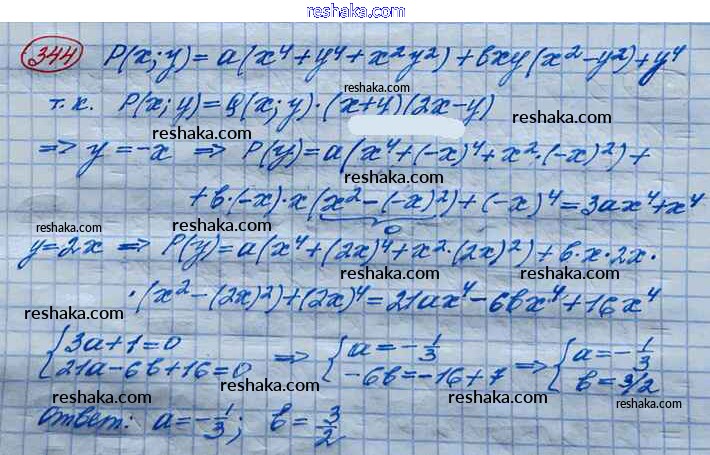 reshaka.com
344 P(x;y) = a(x⁴+y⁴+x²y²)+bxy(x²-y²)+y⁴
reshaka.com
т.к. P(x;y) = Q(x;y)·(x+y)(2x-y)
reshaka.com reshaka.com
=> y=-x => P(y)=a(x⁴+(-x)⁴+x²·(-x)²)+
reshaka.com
+b·(-x)·x(x²-(-x)²)+(-x)⁴=3ax⁴+x⁴
0
reshaka.com reshaka.com reshaka.com
y=2x => P(y)=a(x⁴+(2x)⁴+x²·(2x)²)+b·x·2x·
reshaka.com
·(x²-(2x)²)+(2x)⁴=21ax⁴-6bx⁴+16x⁴
reshaka.com reshaka.com
{3a+1=0 => {a=-1/3 => {a=-1/3
21a-6b+16=0 -6b=-16+7 b=3/2
reshaka.com reshaka.com reshaka.com
Ответ: a=-1/3; b=3/2
reshaka.com reshaka.com